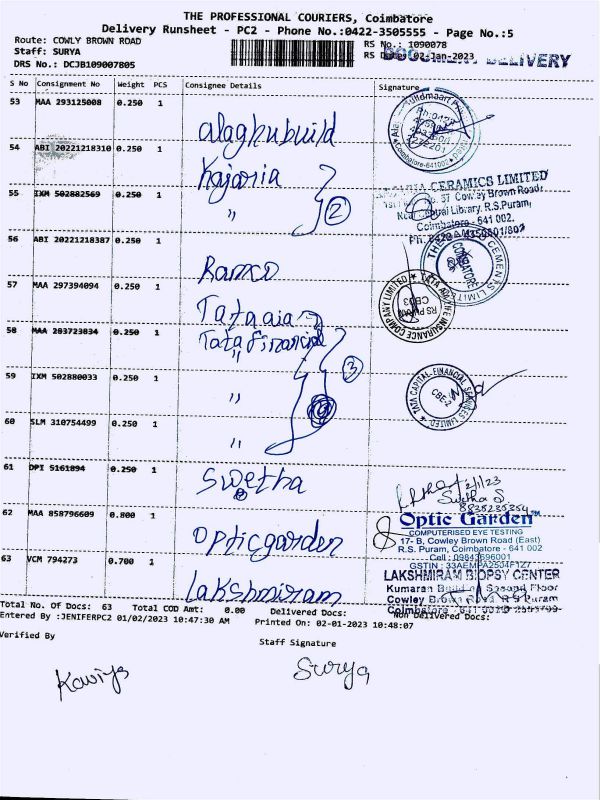 THE PROFESSIONAL COURIERS, Coimbatore
Delivery Runsheet - PC2 - Phone No.:0422-3505555 - Page No.:5
Route: COWLY BROWN ROAD
RS No.: 1090078
Staff: SURYA
RS Date: 02-Jan-2023
DELIVERY
DRS No.: DCJB109007805
S No Consignment No Weight PCS Consignee Details Signature
53 MAA 293125008 0.250 1
alaghubuild
54 ABI 20221218310 0.250 1
Kajaria
CERAMICS LIMITED
55 IXM 502882569 0.250 1
" 2
57 Cowley Brown Road
Library, R.S.Puram,
Coimbatore - 641 002.
56 ABI 20221218387 0.250 1
Ramco
CEMENTS LIMITED
COIMBATORE
57 MAA 297394094 0.250 1
Tata aia
TATA AIA LIFE INSURANCE COMPANY LIMITED
CB03
58 MAA 293723834 0.250 1
Tata financial
" 3
59 IXM 502880033 0.250 1
"
TATA CAPITAL FINANCIAL SERVICES LIMITED
CBE-2
60 SLM 310754499 0.250 1
"
61 DPI 5161894 0.250 1
Swetha
2/1/23
Swetha S.
8835235354
62 MAA 858796609 0.800 1
Opticgarden
Optic Garden™
COMPUTERISED EYE TESTING
17- B, Cowley Brown Road (East)
R.S. Puram, Coimbatore - 641 002
Cell : 09843696001
63 VCM 794273 0.700 1
Lakshmiram
LAKSHMIRAM BIOPSY CENTER
Kumaran Second Floor
Cowley Brown Road R S Puram
Total No. Of Docs: 63 Total COD Amt: 0.00 Delivered Docs: Non Delivered Docs:
Entered By :JENIFERPC2 01/02/2023 10:47:30 AM Printed On: 02-01-2023 10:48:07
Verified By
Staff Signature
Kaviya
Surya